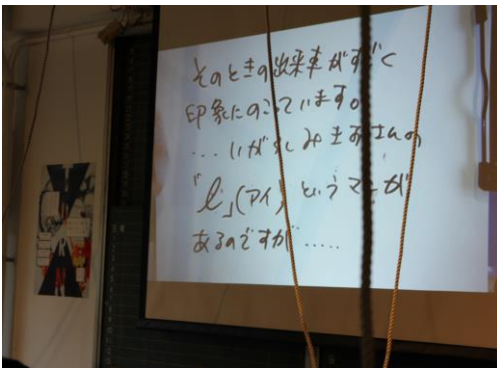 そのときの出来事がすごく
印象にのこっています。
...いがらしみきおさんの
「I」(アイ)というマンガが
あるのですが.....